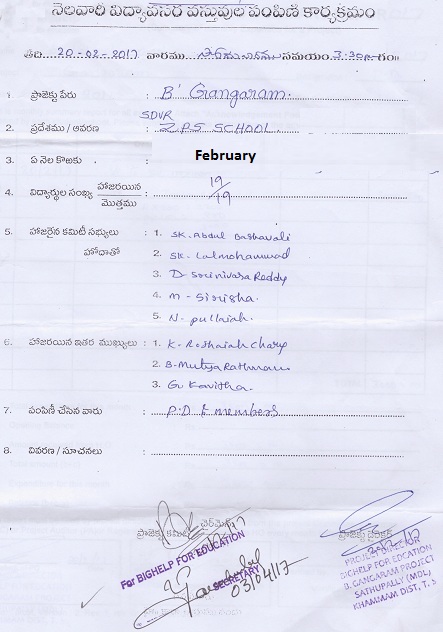 నెలవారి విద్యావసర వస్తువుల పంపిణి కార్యక్రమం
తేది 20-02-2017 వారము సోమవారము సమయం 3:30 గం
1. ప్రాజెక్టు పేరు : B' Gangaram.
SDVR
2. ప్రదేశము / ఆవరణ : Z.P.S SCHOOL.
3. ఏ నెల కొఱకు : February
4. విద్యార్థుల సంఖ్య హాజరయిన / మొత్తము : 19/19
5. హాజరైన కమిటీ సభ్యులు : 1. SK. Abdul Bashavali
హోదాతో 2. SK. Lalmohammad
3. D. Srinivasa Reddy
4. M - Sirisha.
5. N. pullaiah.
6. హాజరయిన ఇతర ముఖ్యులు : 1. K. Roshaiah chary
2. B. Mutya
3. G. Kavitha.
7. పంపిణీ చేసిన వారు : P.D & members
8. వివరణ / సూచనలు :
ప్రాజెక్టు కమిటీ ఛైర్మెన్
ప్రాజెక్టు డైరెక్టర్
For BIGHELP FOR EDUCATION
SECRETARY
03/04/17
PROJECT DIRECTOR
BIGHELP FOR EDCATION
B. GANGARAM PROJECT
SATHUPALLY (MDL)
KHAMMAM DIST, T.S